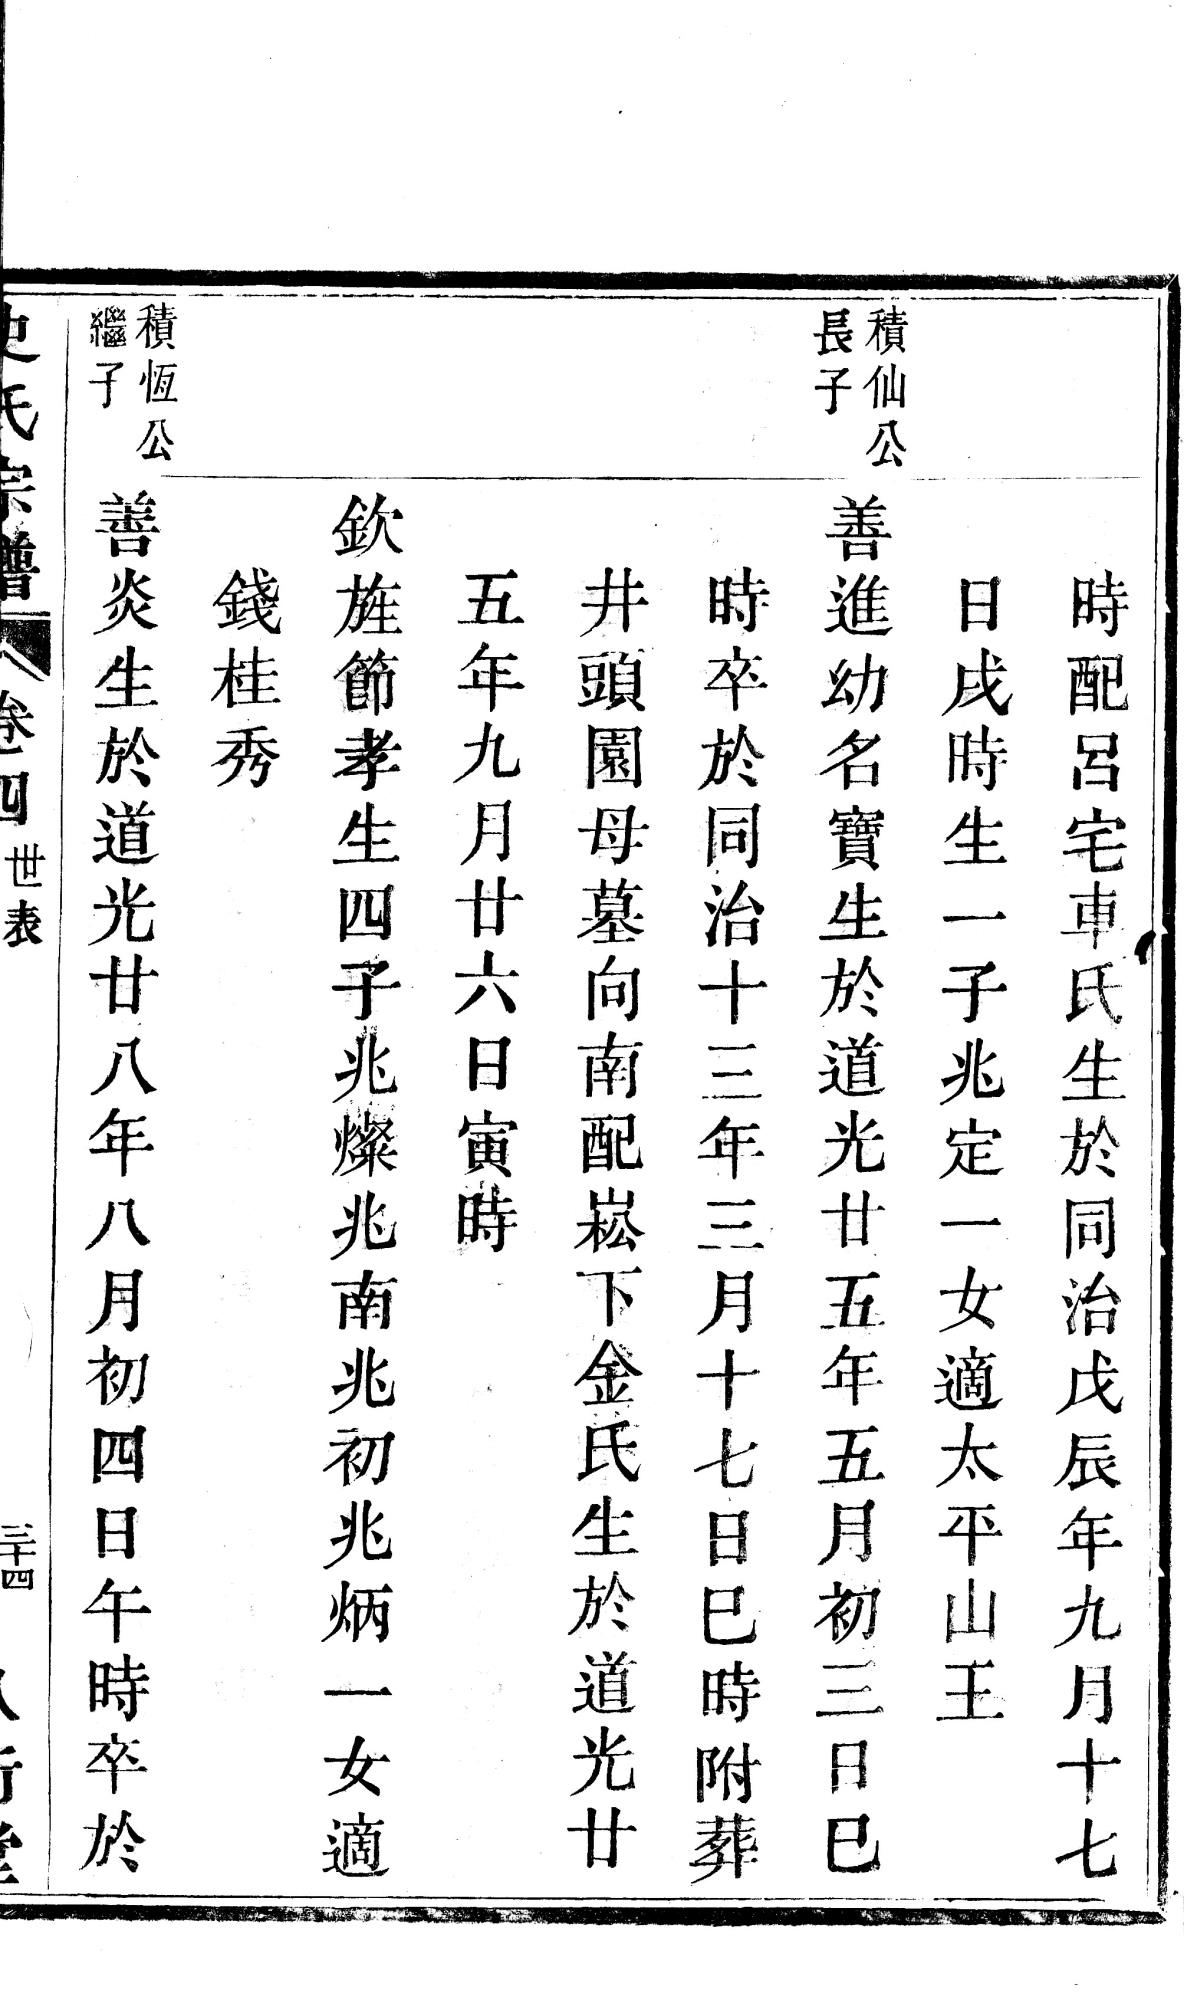 時配呂宅車氏生於同治戊辰年九月十七
日戌時生一子兆定一女適太平山王
積仙公
長子
善進幼名寶生於道光廿五年五月初三日巳
時卒於同治十三年三月十七日巳時附葬
井頭園母墓向南配崧下金氏生於道光廿
五年九月廿六日寅時
欽旌節孝生四子兆燦兆南兆初兆炳一女適
錢桂秀
積恆公
繼子
善炎生於道光廿八年八月初四日午時卒於
史氏宗譜
卷四
世表
三十四
八行堂